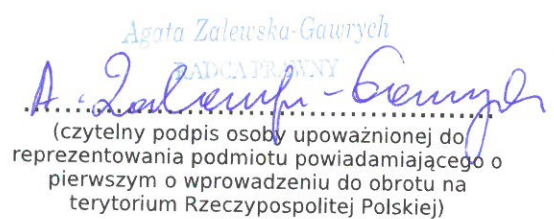 Agata Zalewska-Gawrych
RADCA PRAWNY
A. Zalewska-Gawrych
(czytelny podpis osoby upoważnionej do
reprezentowania podmiotu powiadamiającego o
pierwszym o wprowadzeniu do obrotu na
terytorium Rzeczypospolitej Polskiej)